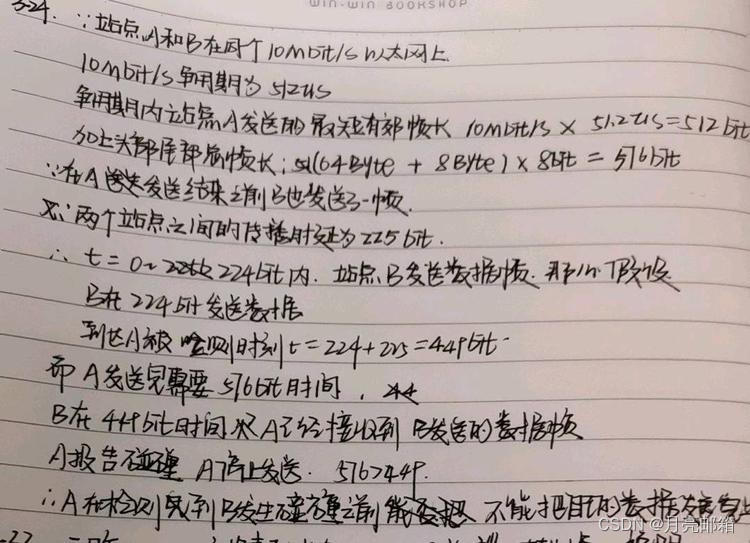 WIN-WIN BOOKSHOP
3-24. ∵站点A和B在同个10mbit/s以太网上.
10mbit/s争用期为512us
争用期内站点A发送的最短有效帧长 10mbit/s × 51.2us=512bit
加上头部 帧长:(64Byte + 8Byte)×8bit = 576bit
∵在A 发送结束之前B也发送了一帧.
又∵两个站点之间的传播时延为225bit.
∴ t=0~ 224bit内. 站点B发送数据帧. 那么 假设
B在224bit发送数据
到达A被 检测时刻t=224+225=449bit
而A发送完需要576bit时间.
B在449bit时间 A已经接收到B发送的数据帧
A报告碰撞 A停止发送. 576>449.
∴A在检测 到B发生碰撞之前 不能把自己的数据发送
CSDN @月亮邮箱